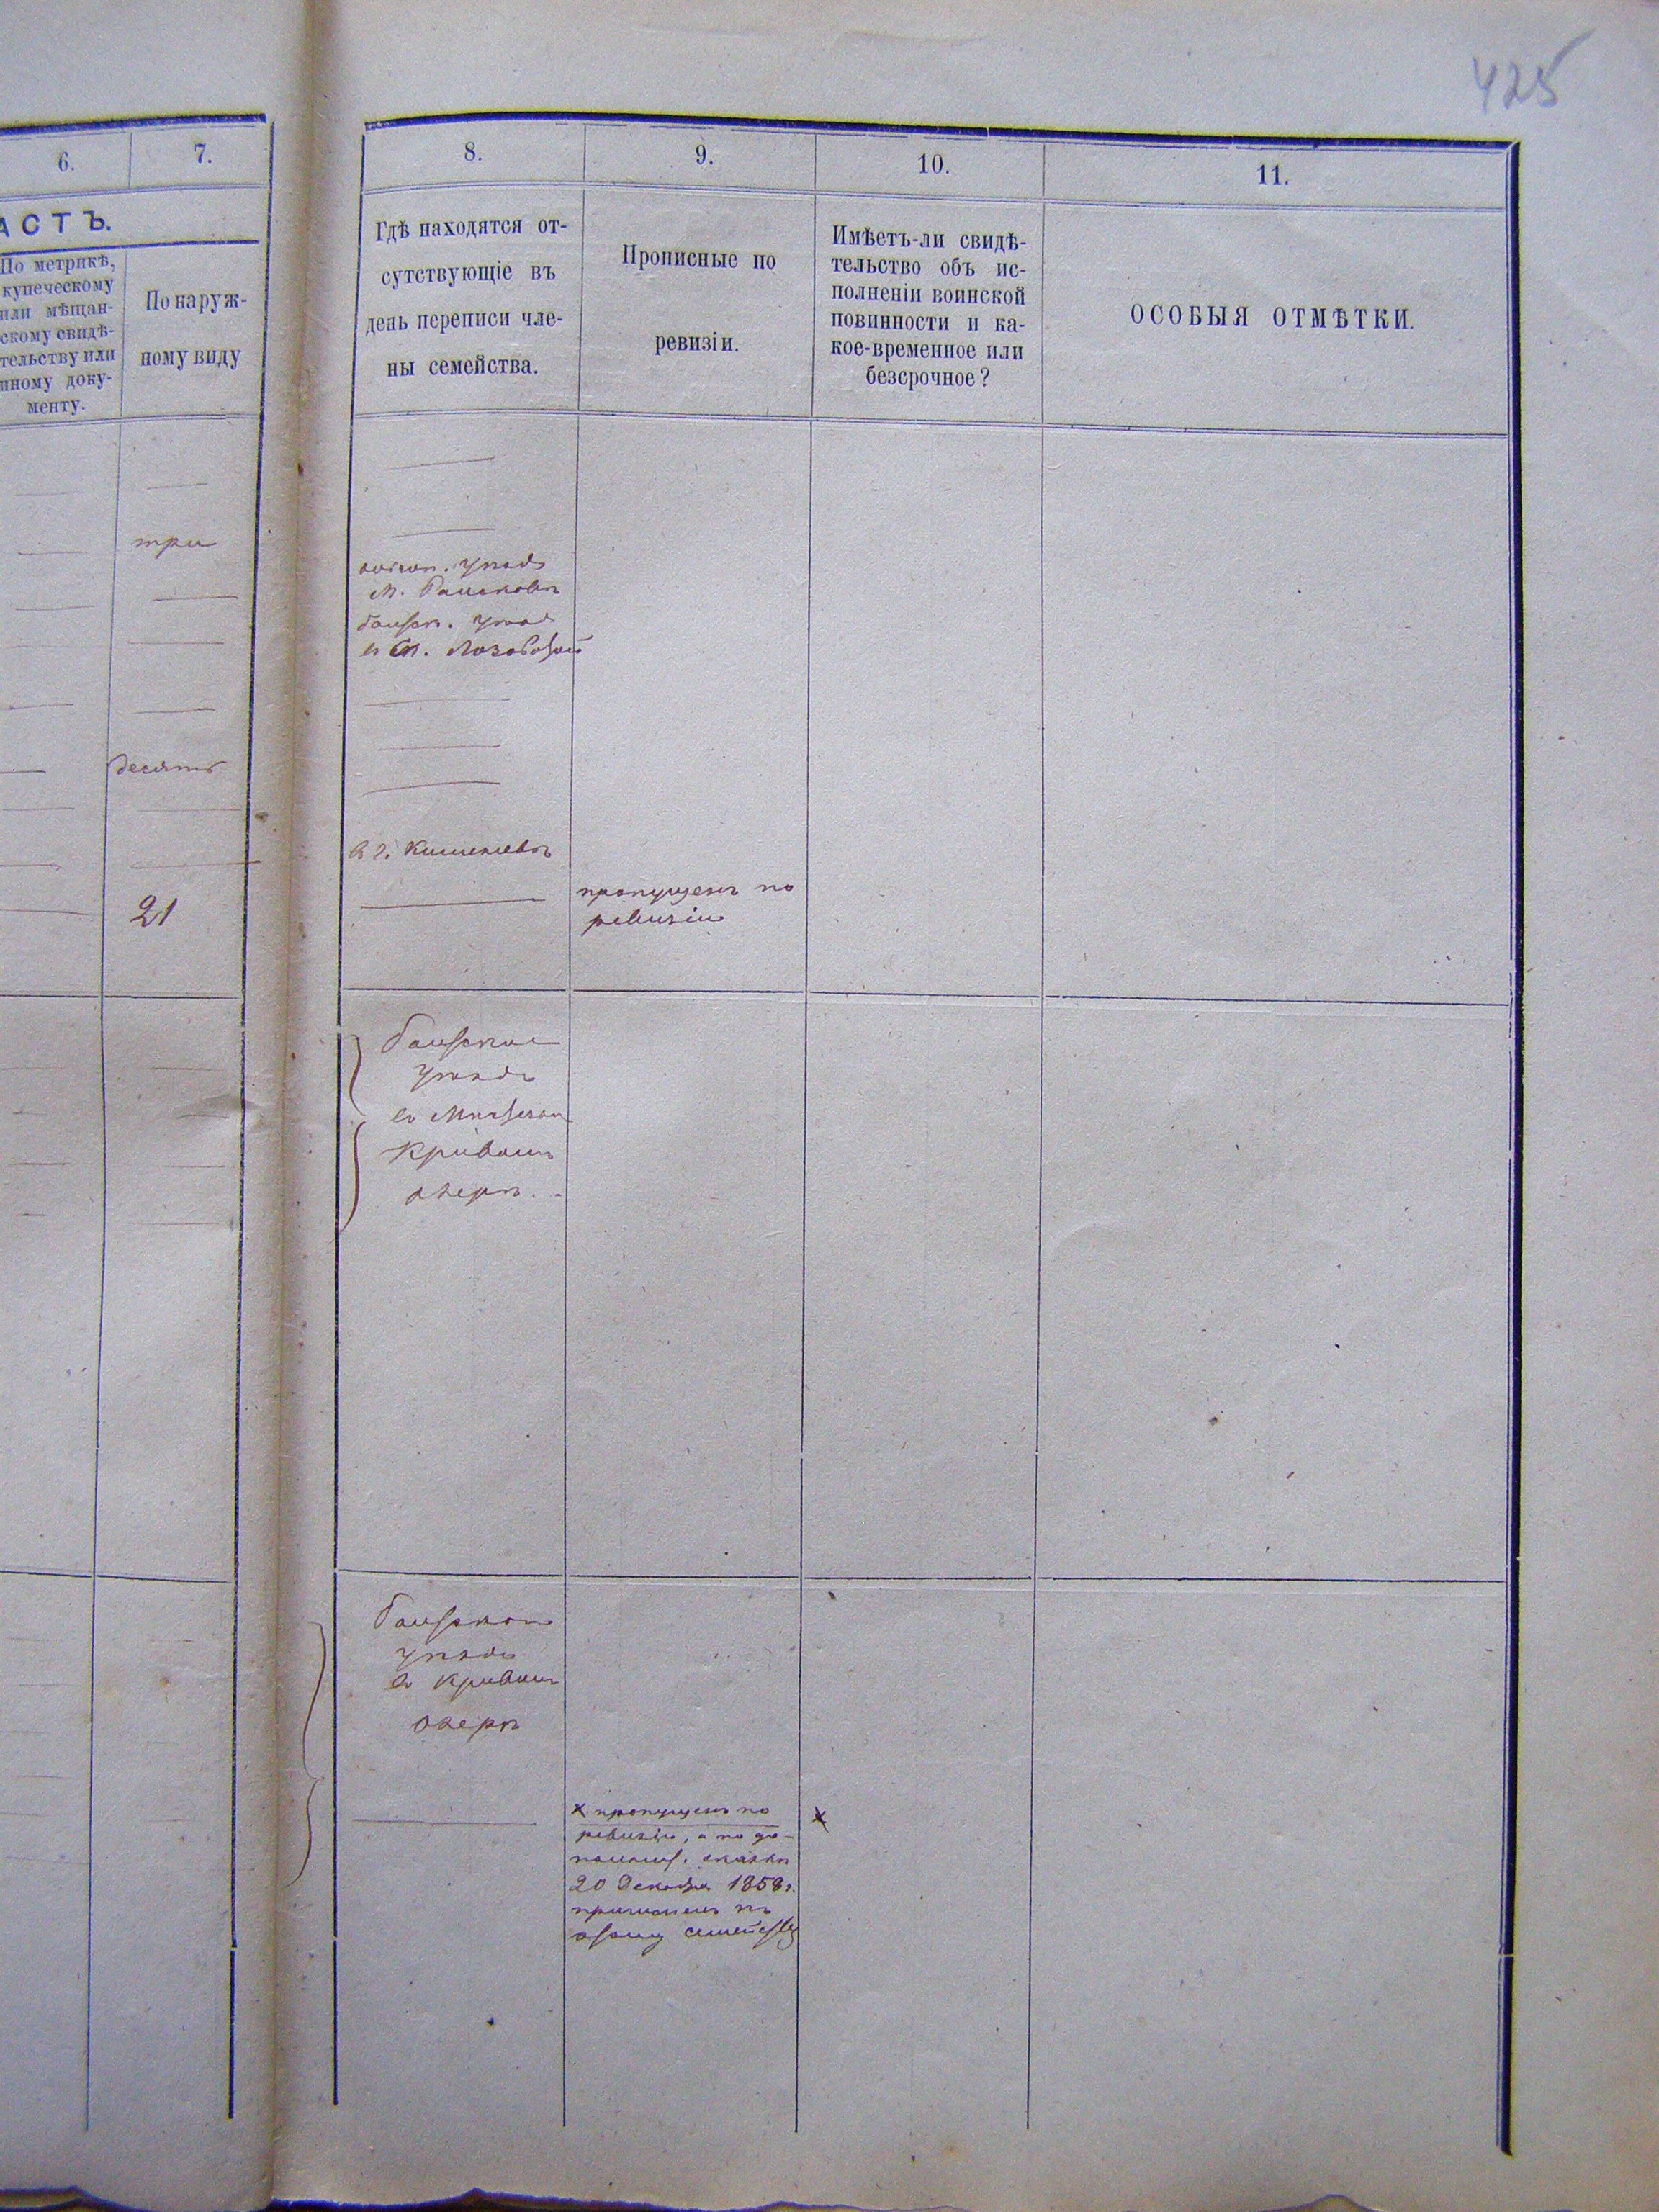 425
6.
7.
АСТЪ.
По метрикѣ,
купеческому
или мѣщан-
скому свидѣ-
тельству или
иному доку-
менту.
По наруж-
ному виду
три
десять
21
8.
9.
10.
11.
Гдѣ находятся от-
сутствующіе въ
день переписи чле-
ны семейства.
Прописные по
ревизіи.
Имѣетъ-ли свидѣ-
тельство объ ис-
полненіи воинской
повинности и ка-
кое-временное или
безсрочное?
ОСОБЫЯ ОТМѢТКИ.
уѣздѣ
м. Рашковѣ
Балтск. уѣздѣ
в м. Лозоватой
в г. Кишеневѣ
пропущенъ по
ревизіи
Балтском
уѣздѣ
в Мѣстечкѣ
Кривомъ
озерѣ.
Балтском
уѣздѣ
в Кривомъ
Озерѣ
х пропущенъ по
х
ревизіи, а по до-
полнит. сказкѣ
20 Декабря 1858 г.
причисленъ къ
этому семейству